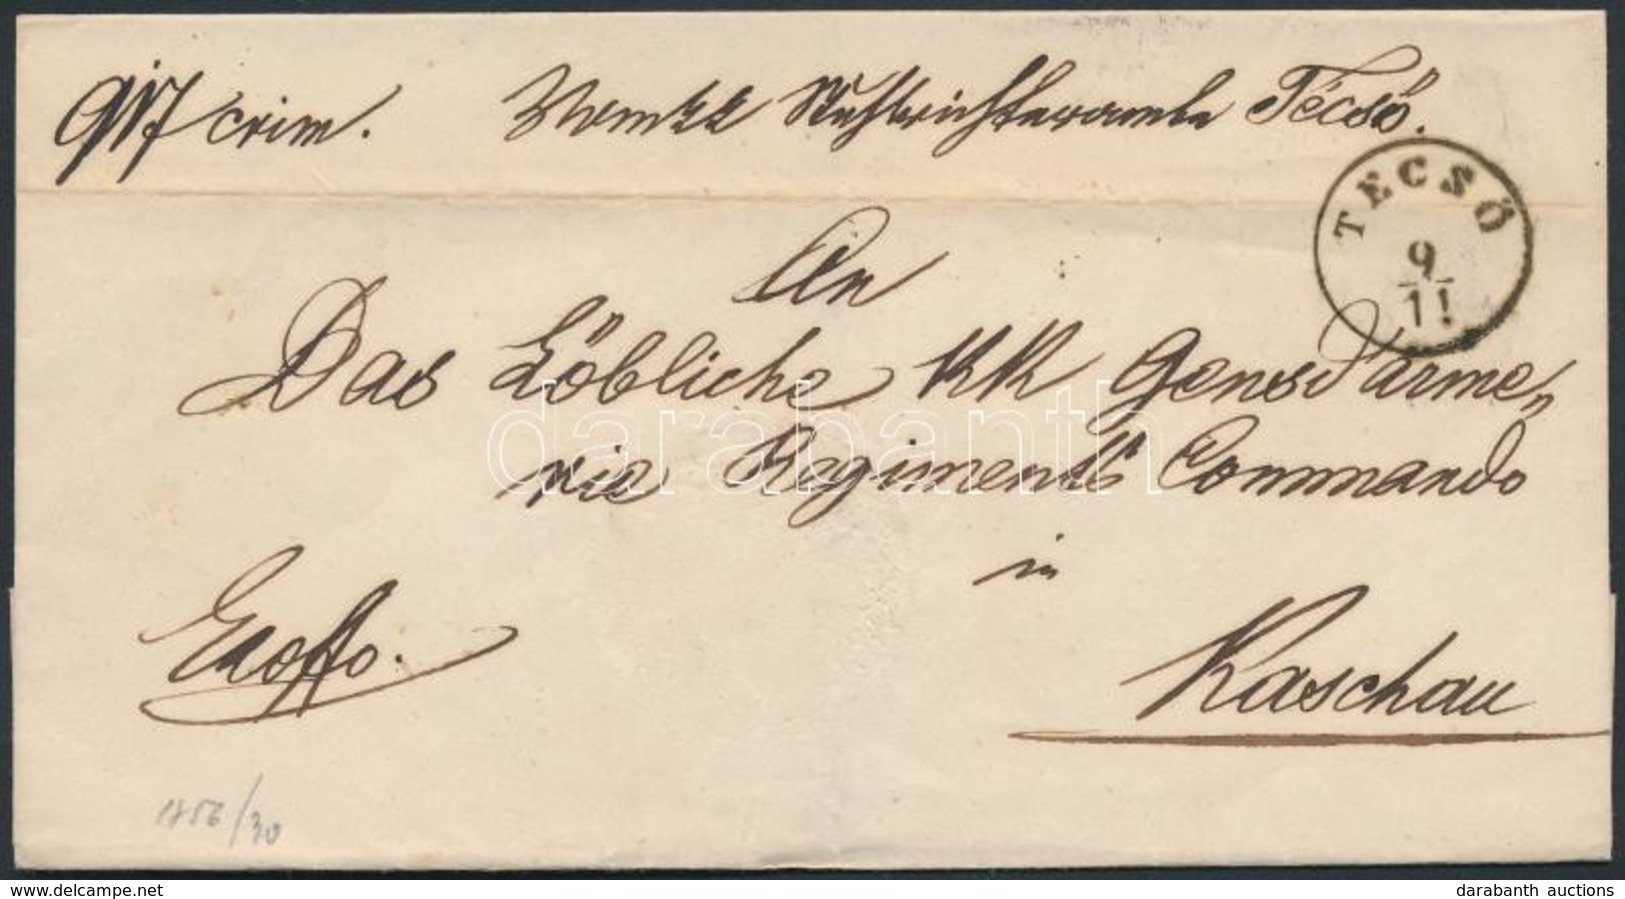 crim. Stuhlrichteramte Técső.
TECSŐ
9
11
An
Das Löbliche KK Gensdarme„
rie Regiments Commando
in
Exoffo.
Kaschau
1856/30
darabanth
www.delcampe.net
darabanth auctions